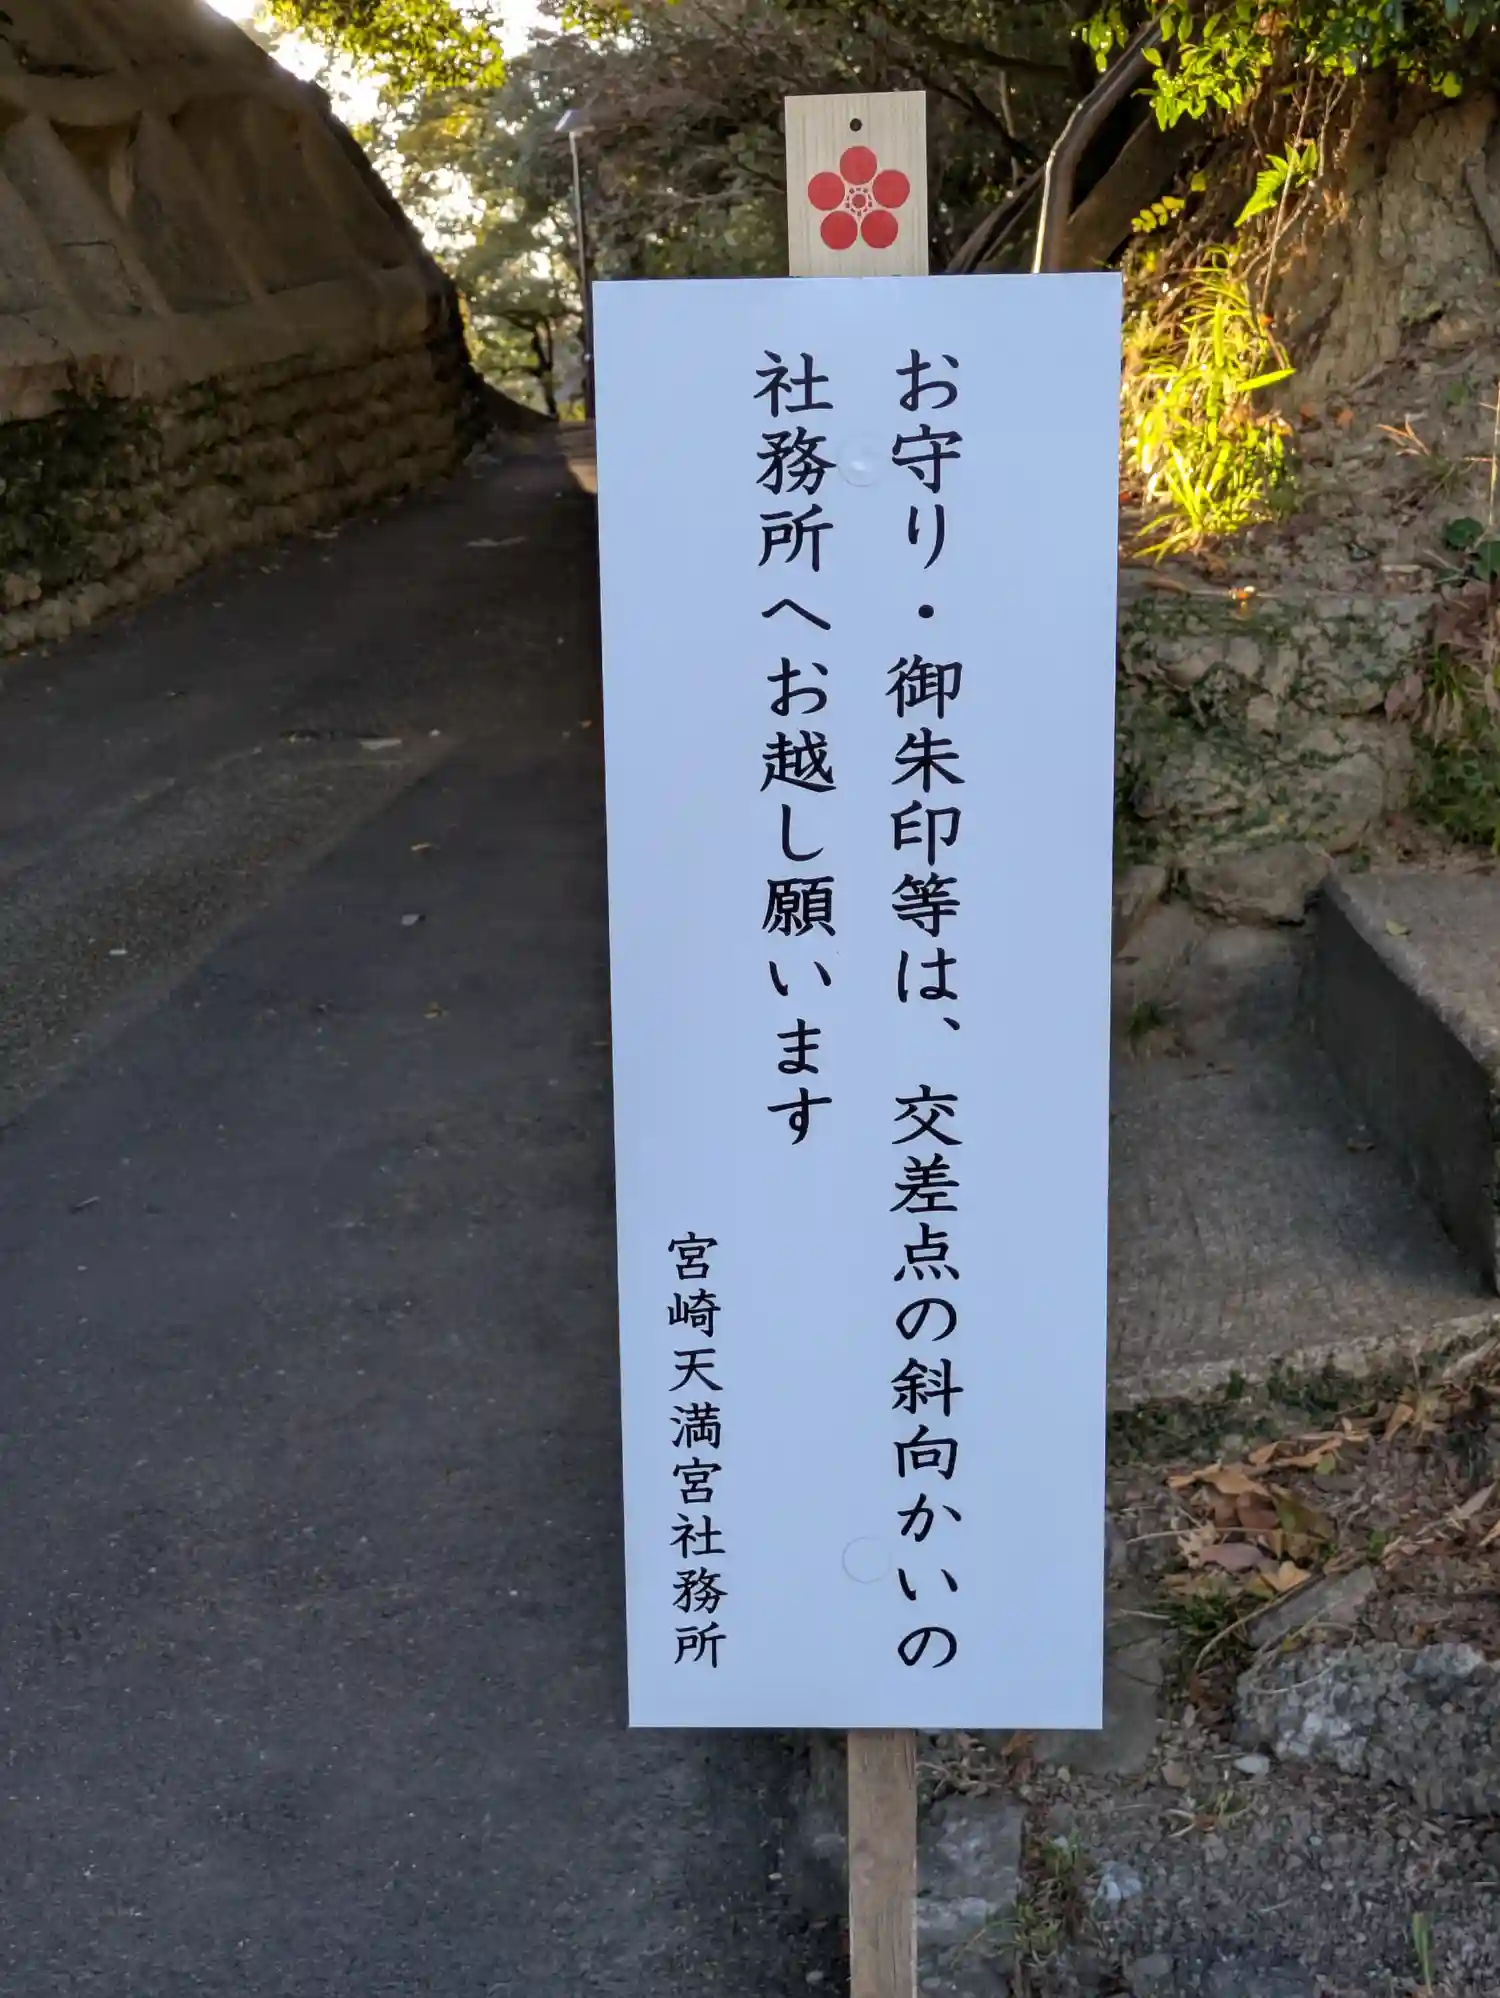 お守り・御朱印等は、交差点の斜向かいの
社務所へお越し願います
宮崎天満宮社務所